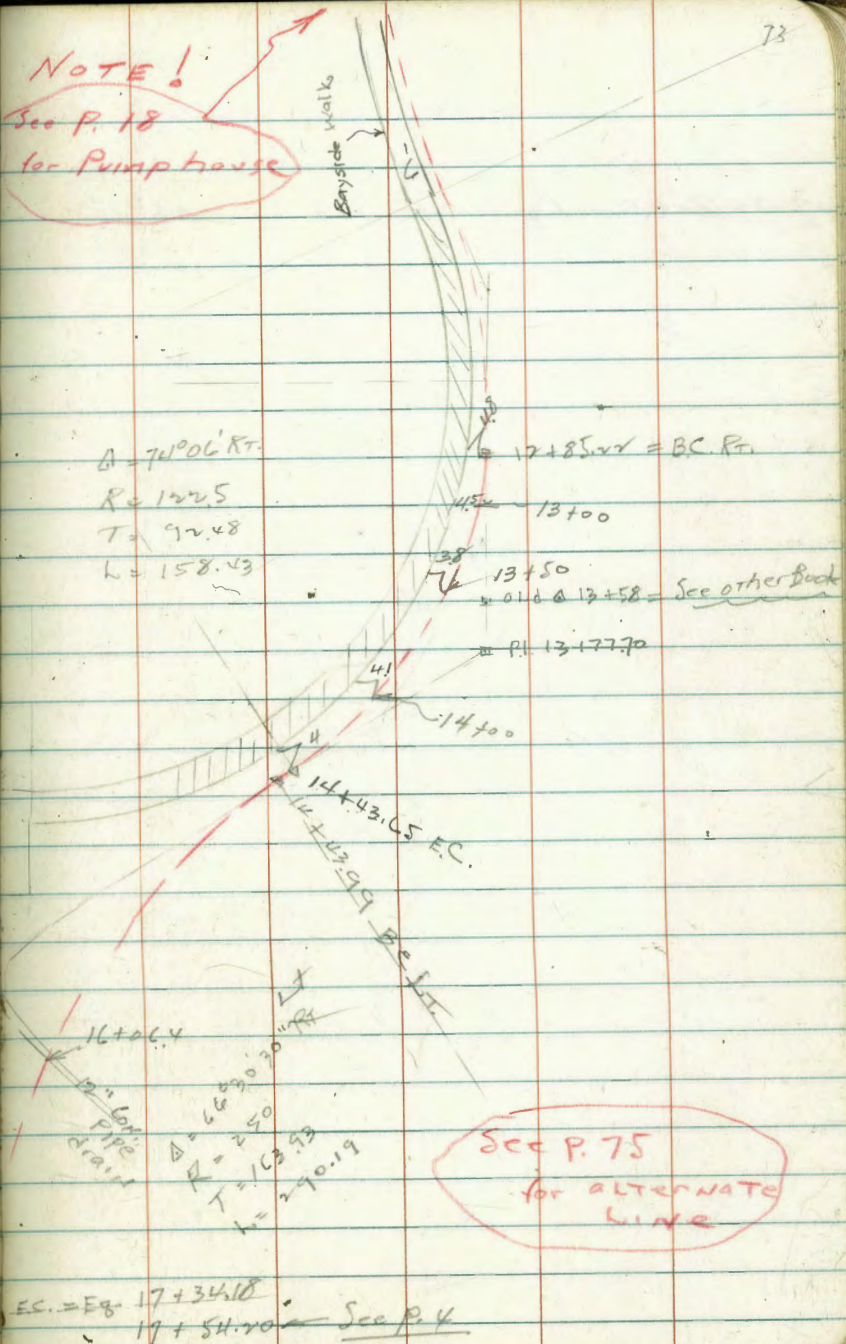 73
NOTE!
See P. 18
for Pumphouse
Bayside Walk
4.8
12+85.22 = B.C. RT.
Δ = 74°06' RT.
R = 122.5
T = 92.48
L = 158.43
4.52
13+00
3.8
13+50
old @ 13+58 = See other Book
P.I. 13+77.70
4.1
14+00
4
14+43.65 E.C.
14+43.99 BC LT.
16+06.4
12" Corr.
pipe
drain
Δ = 66°30'30" Rt Lt
R = 250
T = 163.93
L = 290.19
See P. 75
for ALTERNATE
LINE
E.C. = Eq 17+34.18
17+54.20 See P. 4